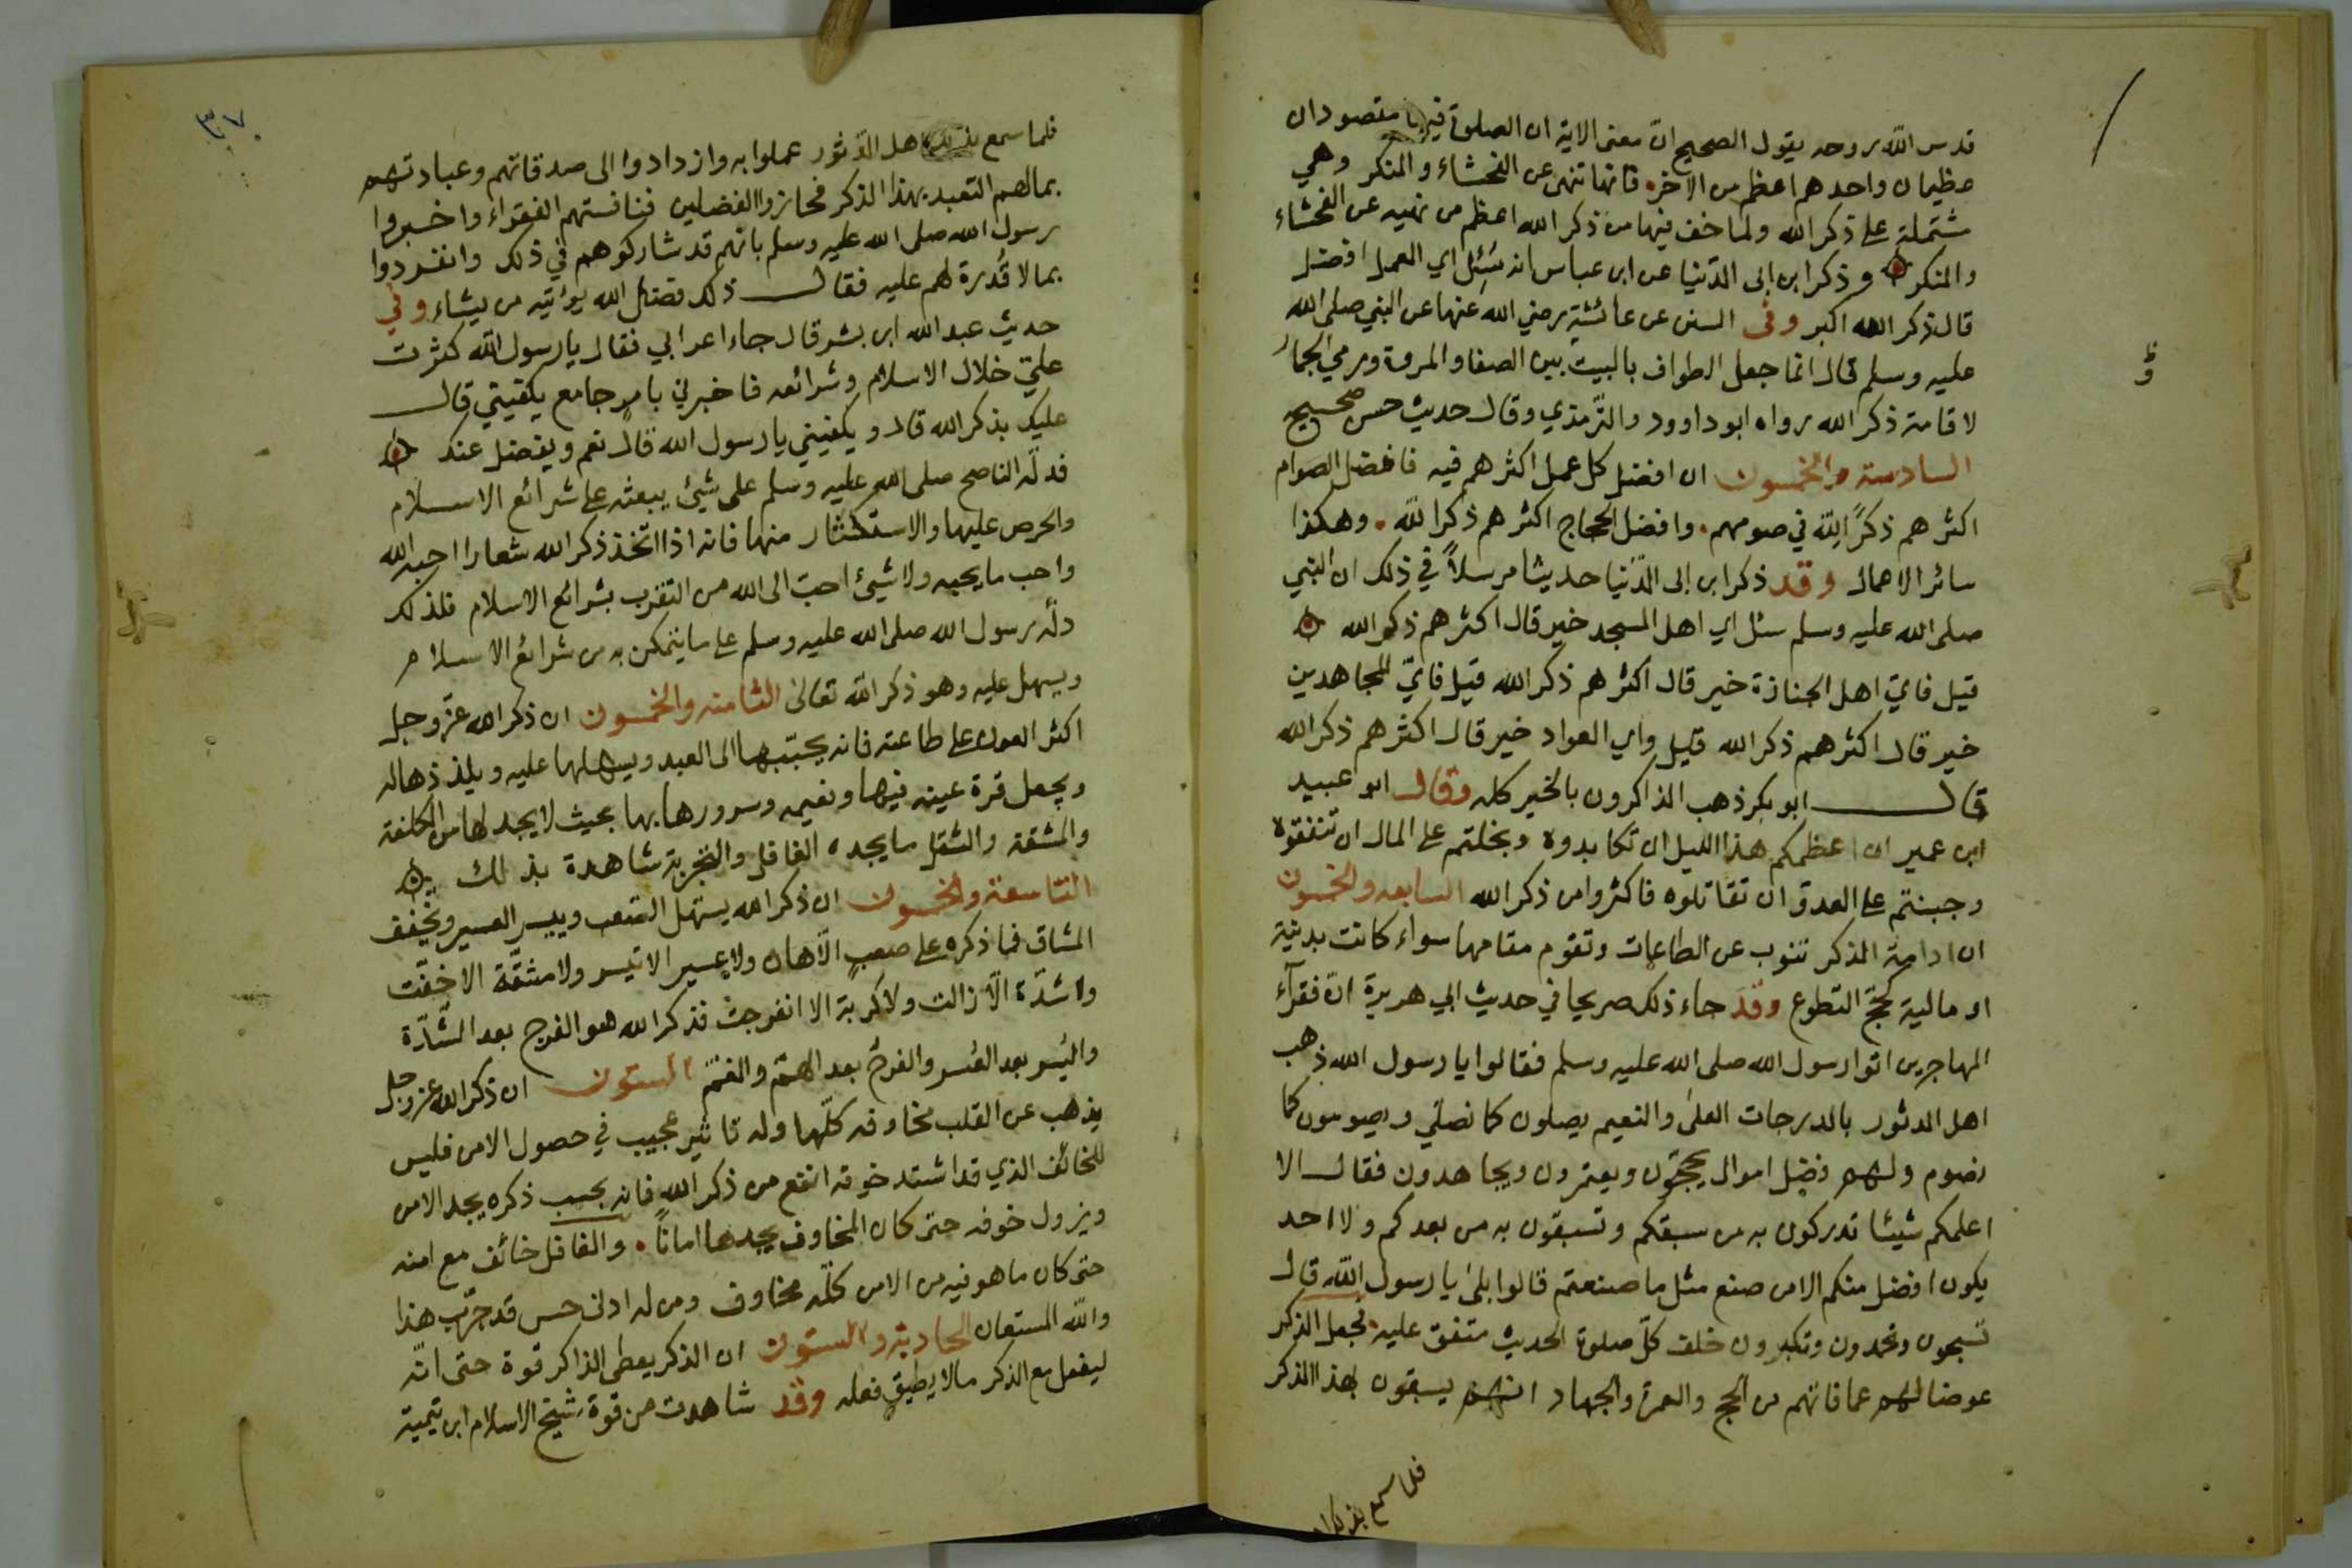 قدس الله روحه يقول الصحيح ان معنى الاية ان الصلوة فيها مقصودان
عظيمان واحدهما اعظم من الاخر فانها تنهى عن الفحشاء والمنكر وهي
مشتملة على ذكر الله ولما خف فيها من ذكر الله اعظم من نهيه عن الفحشاء
والمنكر وذكر ابن ابى الدّنيا عن ابن عباس انه سُئِل اي العمل افضل
قال ذكر الله اكبر وفى السنن عن عائشة رضي الله عنها عن النبي صلى الله
عليه وسلم قال انما جعل الطواف بالبيت بين الصفا والمروة ورمي الجمار
لاقامة ذكر الله رواه ابو داوود والتّرمذي وقال حديث حسن صحيح
السادسة والخمسون ان افضل كل عمل اكثرهم فيه فافضل الصوام
اكثرهم ذكرًا لِلّه في صومهم. وافضل الحجاج اكثرهم ذكرا للّه. وهكذا
سائر الاعمال وقد ذكر ابن ابى الدّنيا حديثا مرسلاً في ذلك ان النبي
صلى الله عليه وسلم سئل اي اهل المسجد خير قال اكثرهم ذكر الله
قيل فايّ اهل الجنازة خير قال اكثرهم ذكر الله قيل فايّ المجاهدين
خير قال اكثرهم ذكر الله قيل واي العواد خير قال اكثرهم ذكر الله
قال ابو بكر ذهب الذاكرون بالخير كله وقال ابو عبيد
ابن عمير ان اعظمكم هذا الليل ان تكابدوه وبخلتم على المال ان تنفقوه
وجبنتم على العدوّ ان تقاتلوه فاكثروا من ذكر الله السابعه والخمسون
ان ادامة الذكر تنوب عن الطاعات وتقوم مقامها سواء كانت بدنية
او مالية كحجّ التطوع وقد جاء ذلك صريحا في حديث ابي هريرة انّ فقرآء
المهاجرين اتوا رسول الله صلى الله عليه وسلم فقالوا يا رسول الله ذهب
اهل الدثور بالدرجات العلى والنعيم يصلون كما نصلي ويصومون كما
نصوم ولهم فضل اموال يحجّون ويعتمرون ويجاهدون فقال الا
اعلمكم شيئا تدركون به من سبقكم وتسبقون به من بعدكم ولا احد
يكون افضل منكم الا من صنع مثل ما صنعتم قالوا بلى يا رسول اللّه قال
تسبحون وتحمدون وتكبرون خلف كلّ صلوة الحديث متفق عليه. فجعل الذكر
عوضا لهم عما فاتهم من الحج والعمرة والجهاد انهم يسبقون بهذا الذكر
فلما سمع بذلك ا
فلما سمع بذلك اهل الدّثور عملوا به وازدادوا الى صدقاتهم وعبادتهم
بمالهم التعبد بهذا الذكر فحازوا الفضلين فنافستهم الفقراء واخبروا
رسول الله صلى الله عليه وسلم بانهم قد شاركوهم في ذلك وانفردوا
بما لا قُدرة لهم عليه فقال ذلك فضل الله يؤتيه من يشاء وفي
حديث عبد الله ابن بشر قال جاء اعرابي فقال يا رسول الله كثرت
عليّ خلال الاسلام وشرائعه فاخبرني بامرٍ جامع يكفيني قال
عليك بذكر الله قال ويكفيني يا رسول الله قال نعم ويفضل عنك
فدلّه الناصح صلى الله عليه وسلم على شيئ يبعثه على شرائع الاسلام
والحرص عليها والاستكثار منها فانه اذا اتخذ ذكر الله شعارا احبه الله
واحب ما يحبه ولا شيئ احبّ الى الله من التقرب بشرائع الاسلام فلذلك
دلّه رسول الله صلى الله عليه وسلم على ما يتمكن به من شرائع الاسلام
ويسهل عليه وهو ذكر الله تعالى الثامنه والخمسون ان ذكر الله عزّ وجل
اكثر العون على طاعته فانه يحبّبها الى العبد ويسهلها عليه ويلذذها له
ويجعل قرة عينه فيها ونعيمه وسرورها بها بحيث لا يجد لها من الكلفة
والمشقة والثقل ما يجده الغافل والتجربة شاهدة بذلك
التاسعة والخمسون ان ذكر الله يسهّل الصّعب وييسر العسير ويخفّف
المشاق فما ذكره على صعبٍ الّا هان ولا عسير الا تيسر ولا مشقّة الا خفّت
ولا شدّة الّا زالت ولا كربة الا انفرجت فذكر الله هو الفرج بعد الشّدّة
واليُسر بعد العُسر والفرج بعد الهمّ والغمّ الستون ان ذكر الله عز وجل
يذهب عن القلب مخاوفه كلّها وله تاثير عجيب في حصول الامن فليس
للخائف الذي قد اشتد خوفه انفع من ذكر الله فانه بحسب ذكره يجد الامن
ويزول خوفه حتى كان المخاوف يجدها اماناً. والغافل خائف مع امنه
حتى كان ما هو فيه من الامن كلّه مخاوف ومن له ادنى حس قد جرّب هذا
والله المستعان الحادية والستون ان الذكر يعطى الذاكر قوة حتى انّه
ليفعل مع الذكر مالا يطيق فعله وقد شاهدت من قوة شيخ الاسلام ابن تيمية